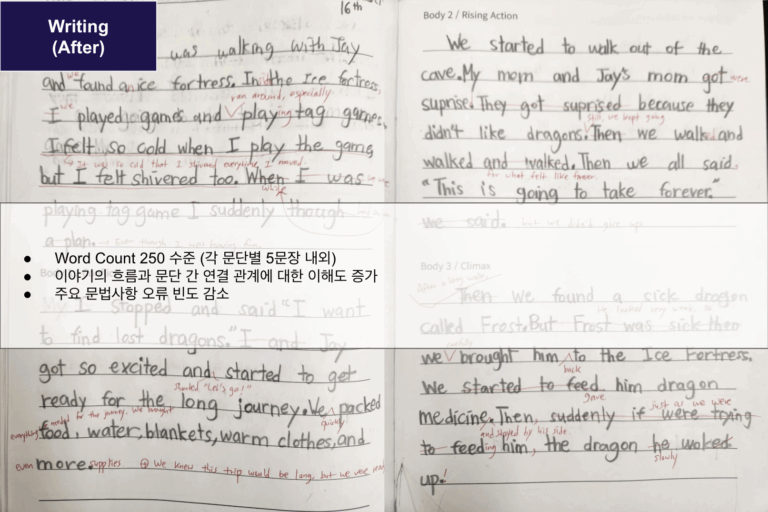 Writing
(After)
16th
was walking with Jay
and found an ice fortress. In the Ice fortress,
ran around, especially
I played games and play tag games.
I felt so cold when I play the game
It was so cold that I shivered everytime I moved.
but I felt shivered too. When I was
while
playing tag game I suddenly though
a plan.
I stopped and said "I want
to find last dragons." I and Jay
got so excited and started to get
shouted "Let's go!"
ready for the long journey. We packed
needed for the journey. we brought
quickly
everything
food, water, blankets, warm clothes, and
even more. supplies
We knew this trip would be long, but we were
Body 2 / Rising Action
We started to walk out of the
cave. My mom and Jay's mom got
were
suprise. They got suprised because they
still, we kept going
didn't like dragons. Then we walked and
walked and walked. Then we all said
for what felt like forever.
"This is going to take forever."
we said. but we didn't give up.
Word Count 250 수준 (각 문단별 5문장 내외)
이야기의 흐름과 문단 간 연결 관계에 대한 이해도 증가
주요 문법사항 오류 빈도 감소
Body 3 / Climax
After a long walk,
Then we found a sick dragon
called Frost. But Frost was sick then
carefully
we brought him to the Ice Fortress.
back
We started to feed him dragon
gave
just as we were
medicine. Then, suddenly if were trying
and stayed by his side.
to feeding him, the dragon he woked
slowly
up!